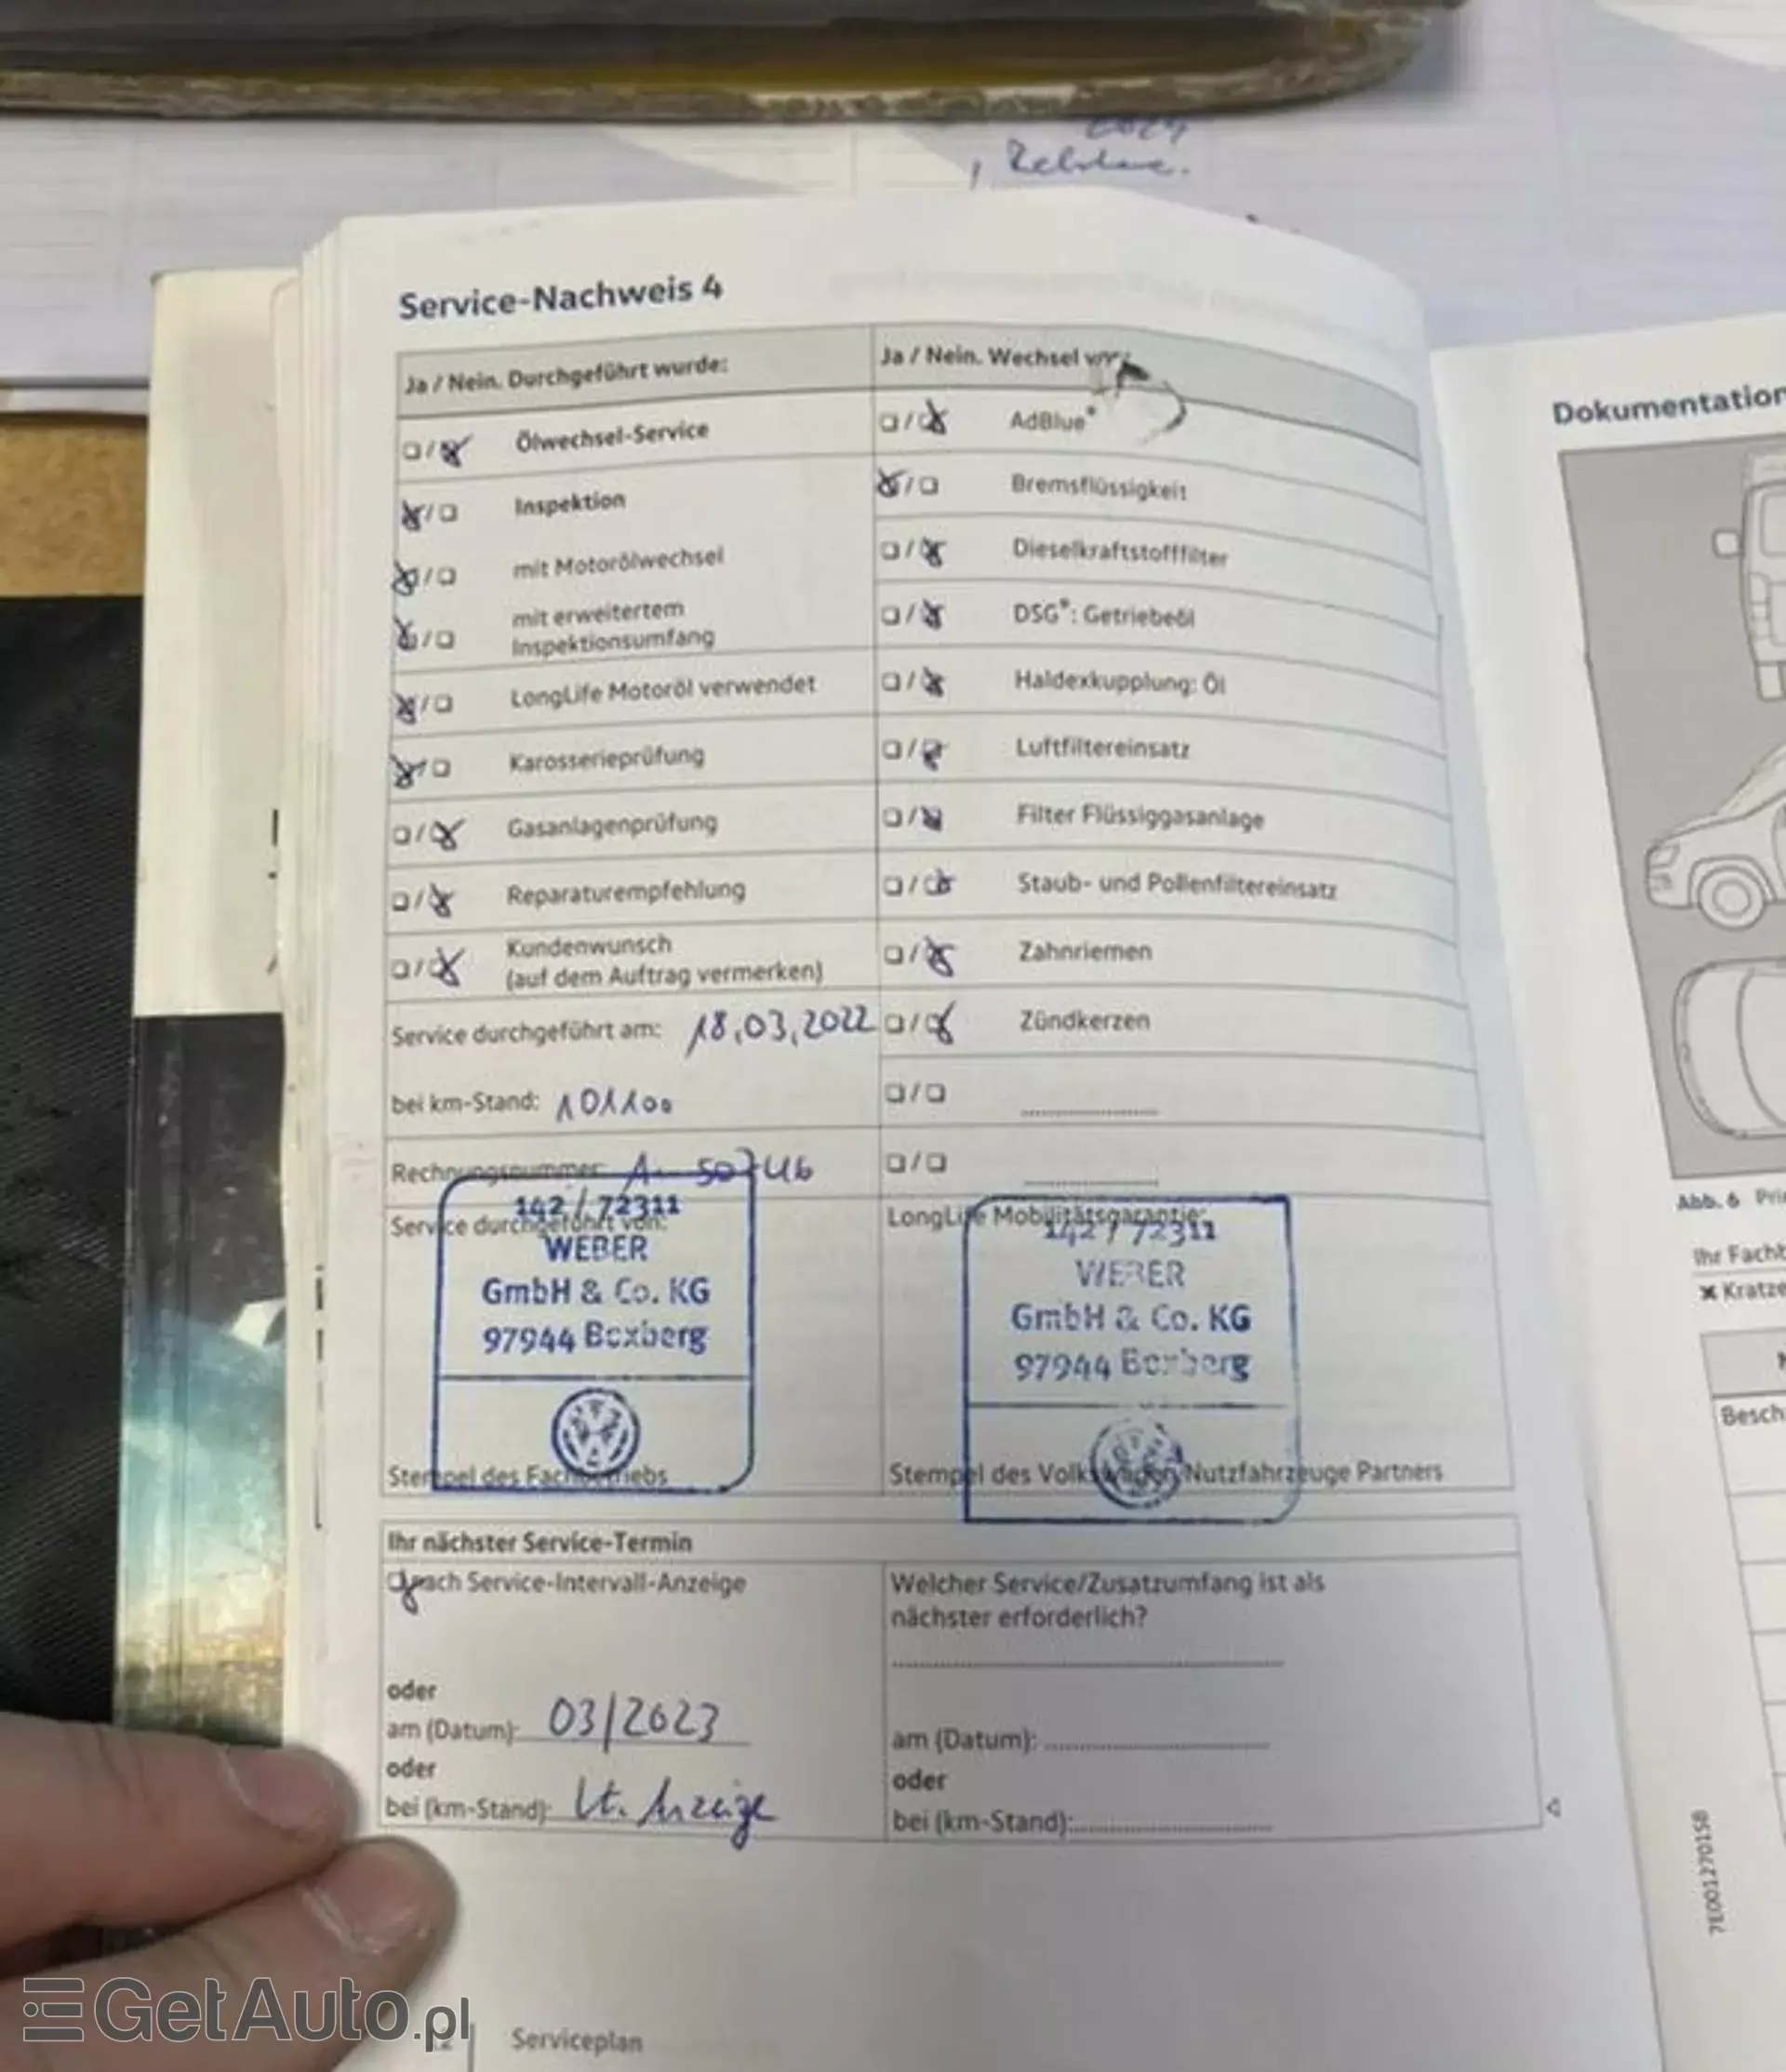 Service-Nachweis 4
Ja / Nein. Durchgeführt wurde:
Ölwechsel-Service
Inspektion
mit Motorölwechsel
mit erweitertem
Inspektionsumfang
LongLife Motoröl verwendet
Karosserieprüfung
Gasanlagenprüfung
Reparaturempfehlung
Kundenwunsch
(auf dem Auftrag vermerken)
Service durchgeführt am: 18.03.2022
bei km-Stand: 101100
Rechnungsnummer:
Service durchgeführt von:
142 / 72311
WEBER
GmbH & Co. KG
97944 Boxberg
Stempel des Fachbetriebs
Ja / Nein. Wechsel
AdBlue®
Bremsflüssigkeit
Dieselkraftstofffilter
DSG®: Getriebeöl
Haldexkupplung: Öl
Luftfiltereinsatz
Filter Flüssiggasanlage
Staub- und Pollenfiltereinsatz
Zahnriemen
Zündkerzen
LongLife Mobilitätsgarantie:
142 / 72311
WEBER
GmbH & Co. KG
97944 Boxberg
Stempel des Volkswagen Nutzfahrzeuge Partners
Ihr nächster Service-Termin
nach Service-Intervall-Anzeige
oder
am (Datum): 03/2023
oder
bei (km-Stand): lt. Anzeige
Welcher Service/Zusatzumfang ist als
nächster erforderlich?
am (Datum):
oder
bei (km-Stand):
Serviceplan
Dokumentation
Abb. 6
Ihr Fachb
Kratze
Besch
7E0012701SB
GetAuto.pl